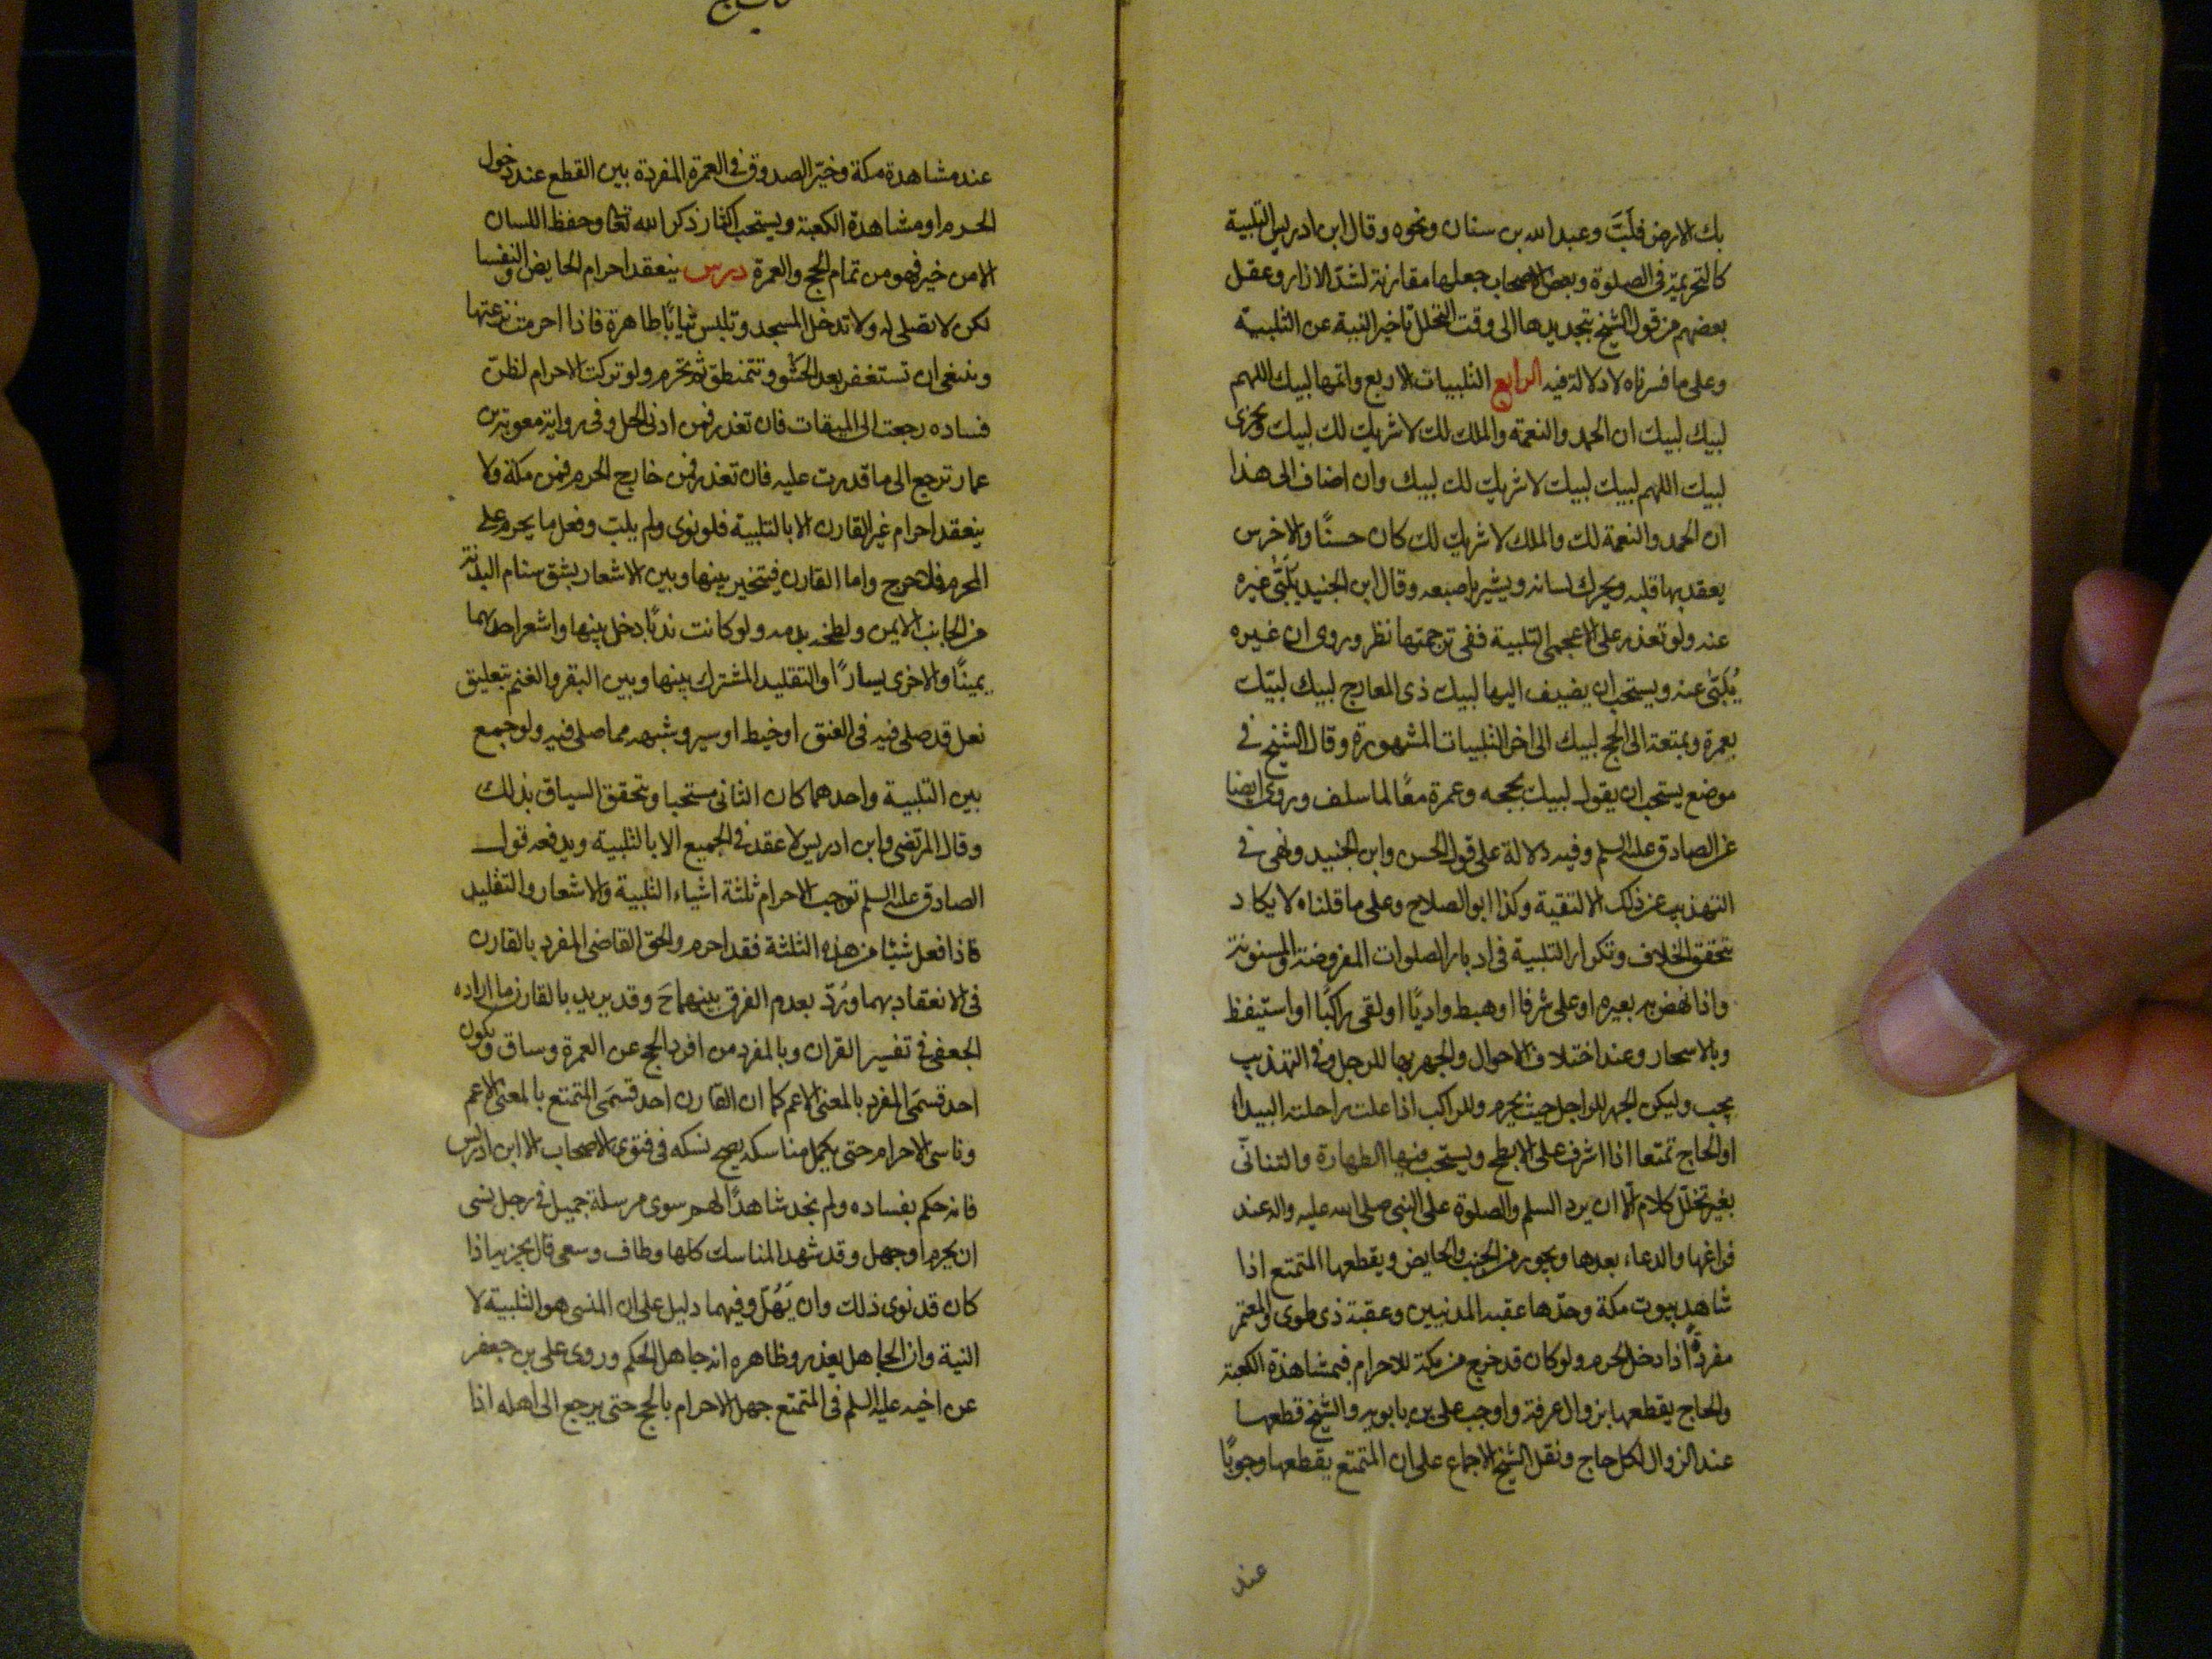 بك الارض فلَبّ وعبد الله بن سنان ونحوه وقال ابن ادريس التلبية
كالتحريمة في الصلوة وبعض الاصحاب جعلها مقارنة لشدّ الازار وعقل
بعضهم من قول الشيخ بتجديدها الى وقت التحلل تاخير النية عن التلبية
وعلى ما فسرناه لا دلالة فيه الرابع التلبيات الاربع واتمها لبيك اللهم
لبيك لبيك ان الحمد والنعمة والملك لك لا شريك لك لبيك ويجزى
لبيك اللهم لبيك لبيك لا شريك لك لبيك وان اضاف الى هذا
ان الحمد والنعمة لك والملك لا شريك لك كان حسنًا والاخرس
يعقد بها قلبه ويحرك لسانه ويشير باصبعه وقال ابن الجنيد يُلَبّى غيره
عنه ولو تعذر على الاعجمى التلبية ففى ترجمتها نظر وروى ان غيره
يُلبّى عنه ويستحب ان يضيف اليها لبيك ذى المعارج لبيك لبيك
بعمرة وبمتعة الى الحج لبيك الى اخر التلبيات المشهورة وقال الشيخ في
موضع يستحب ان يقول لبيك بحجه وعمرة معًا لما سلف وروى ايضا
عن الصادق عليه السلم وفيه دلالة على قول الحسن وابن الجنيد ونهى في
التهذيب عن ذلك الا لتقية وكذا ابو الصلاح وعلى ما قلناه لا يكاد
يتحقق الخلاف وتكرار التلبية في ادبار الصلوات المفروضة والمسنونة
واذا نهض به بعيره او على شرفا او هبط واديًا او لقى راكبًا او استيقظ
وبالاسحار وعند اختلاف الاحوال والجهر بها للرجل وفي التهذيب
يجب وليكن الجهر للراجل حيث يحرم وللراكب اذا علت راحلته البيداء
او الحاج تمتعا اذا اشرف على الابطح ويستحب فيها الطهارة والتتالى
بغير تخلّل كلام الّا ان يرد السلم والصلوة على النبى صلى الله عليه واله عند
فراغها والدعاء بعدها ويجوز من الجنب والحايض ويقطعها المتمتع اذا
شاهد بيوت مكة وحدّها عقبة المدنيين وعقبة ذى طوى والمعتمر
مفردةً اذا دخل الحرم ولو كان قد خرج من مكة للاحرام فبمشاهدة الكعبة
والحاج يقطعها بزوال عرفة واوجب على بن بابويه والشيخ قطعها
عند الزوال لكل حاج ونقل الشيخ الاجماع على ان المتمتع يقطعها وجوبًا
عند
عند مشاهدة مكة وخيّر الصدوق في العمرة المفردة بين القطع عند دخول
الحرم او مشاهدة الكعبة ويستحب اكثار ذكر الله تعالى وحفظ اللسان
الا من خير فهو من تمام الحج والعمرة درس ينعقد احرام الحايض والنفسا
لكن لا تصلى له ولا تدخل المسجد وتلبس ثيابًا طاهرة فاذا احرمت نزعتها
وينبغى ان تستغفر بعد الحشو وتتمنطق ثم تحرم ولو تركت الاحرام لظنّ
فساده رجعت الى الميقات فان تعذر فمن ادنى الحل وفي رواية معوية بن
عمار ترجع الى ما قدرت عليه فان تعذر فمن خارج الحرم فمن مكة ولا
ينعقد احرام غير القارن الا بالتلبية فلو نوى ولم يلبّ وفعل ما يحرم على
المحرم فلا حرج واما القارن فيتخير بينها وبين الاشعار بشق سنام البدنة
من الجانب الايمن ولطخه بدمه ولو كانت بدنًا دخل بينها واشعر احدهما
يمينًا والاخرى يسارًا والتقليد المشترك بينها وبين البقر والغنم بتعليق
نعل قد صلى فيه في العنق او خيط او سير وشبهه مما صلى فيه ولو جمع
بين التلبية واحدهما كان الثانى مستحبا ويتحقق السياق بذلك
وقال المرتضى وابن ادريس لا عقد في الجميع الا بالتلبية ويدفعه قول
الصادق عليه السلم توجب الاحرام ثلثة اشياء التلبية والاشعار والتقليد
فاذا فعل شيئا من هذه الثلثة فقد احرم والحق القاضى المفرد بالقارن
في الانعقاد بهما ورُدّ بعدم الفرق بينهما حَ وقد يريد بالقارن ما اراده
الجعفى في تفسير القران وبالمفرد من افرد الحج عن العمرة وساق ويكون
احد قسمَى المفرد بالمعنى الاعم كما ان القارن احد قسمَى المتمتع بالمعنى الاعم
وناسى الاحرام حتى يكمل مناسكه يصح نسكه في فتوى الاصحاب الا ابن ادريس
فانه حكم بفساده ولم نجد شاهدًا لهم سوى مرسلة جميل في رجل نسى
ان يحرم او جهل وقد شهد المناسك كلها وطاف وسعى قال يجزيه اذا
كان قد نوى ذلك وان يَهُلّ وفيهما دليل على ان المنسى هو التلبية لا
النية وان الجاهل يعذر وظاهره انه جاهل الحكم وروى على بن جعفر
عن اخيه عليه السلم في المتمتع جهل الاحرام بالحج حتى يرجع الى اهله اذا